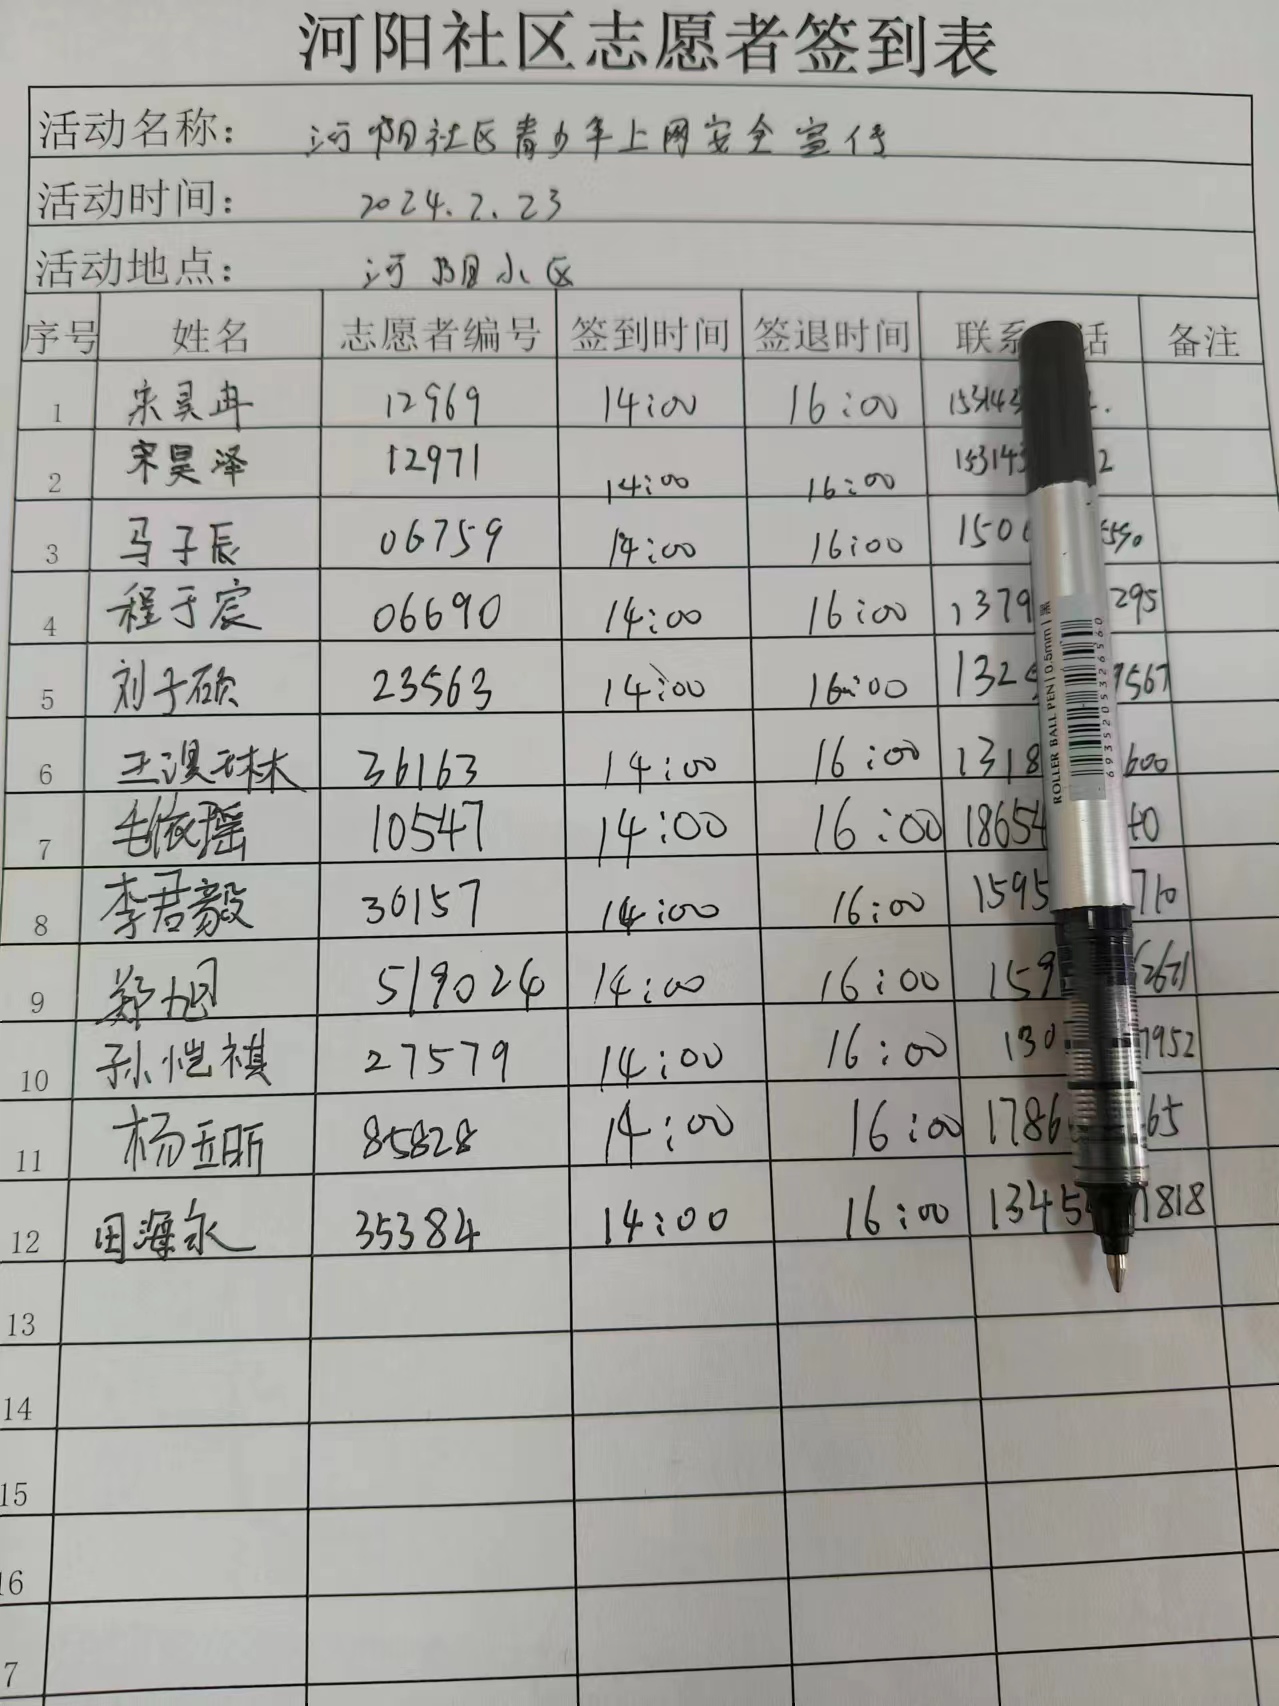 河阳社区志愿者签到表
活动名称： 河阳社区青少年上网安全宣传
活动时间： 2024.2.23
活动地点： 河阳小区
序号 姓名 志愿者编号 签到时间 签退时间 联系 话 备注
1 宋昊冉 12969 14:00 16:00 153143
2 宋昊泽 12971 14:00 16:00 153143 2
3 马子辰 06759 14:00 16:00 150 590
4 程于宸 06690 14:00 16:00 1379 295
5 刘子硕 23563 14:00 16:00 132 9567
6 王淏 36163 14:00 16:00 1318 600
7 毛依瑶 10547 14:00 16:00 18654 40
8 李君毅 36157 14:00 16:00 1595 710
9 郑旭 519024 14:00 16:00 159 2671
10 孙恺祺 27579 14:00 16:00 130 7952
11 杨玉昕 85828 14:00 16:00 1786 65
12 田海永 35384 14:00 16:00 1345 1818
13
14
15
16
7
ROLLER BALL PEN | 0.5mm | 黑
6935205326560